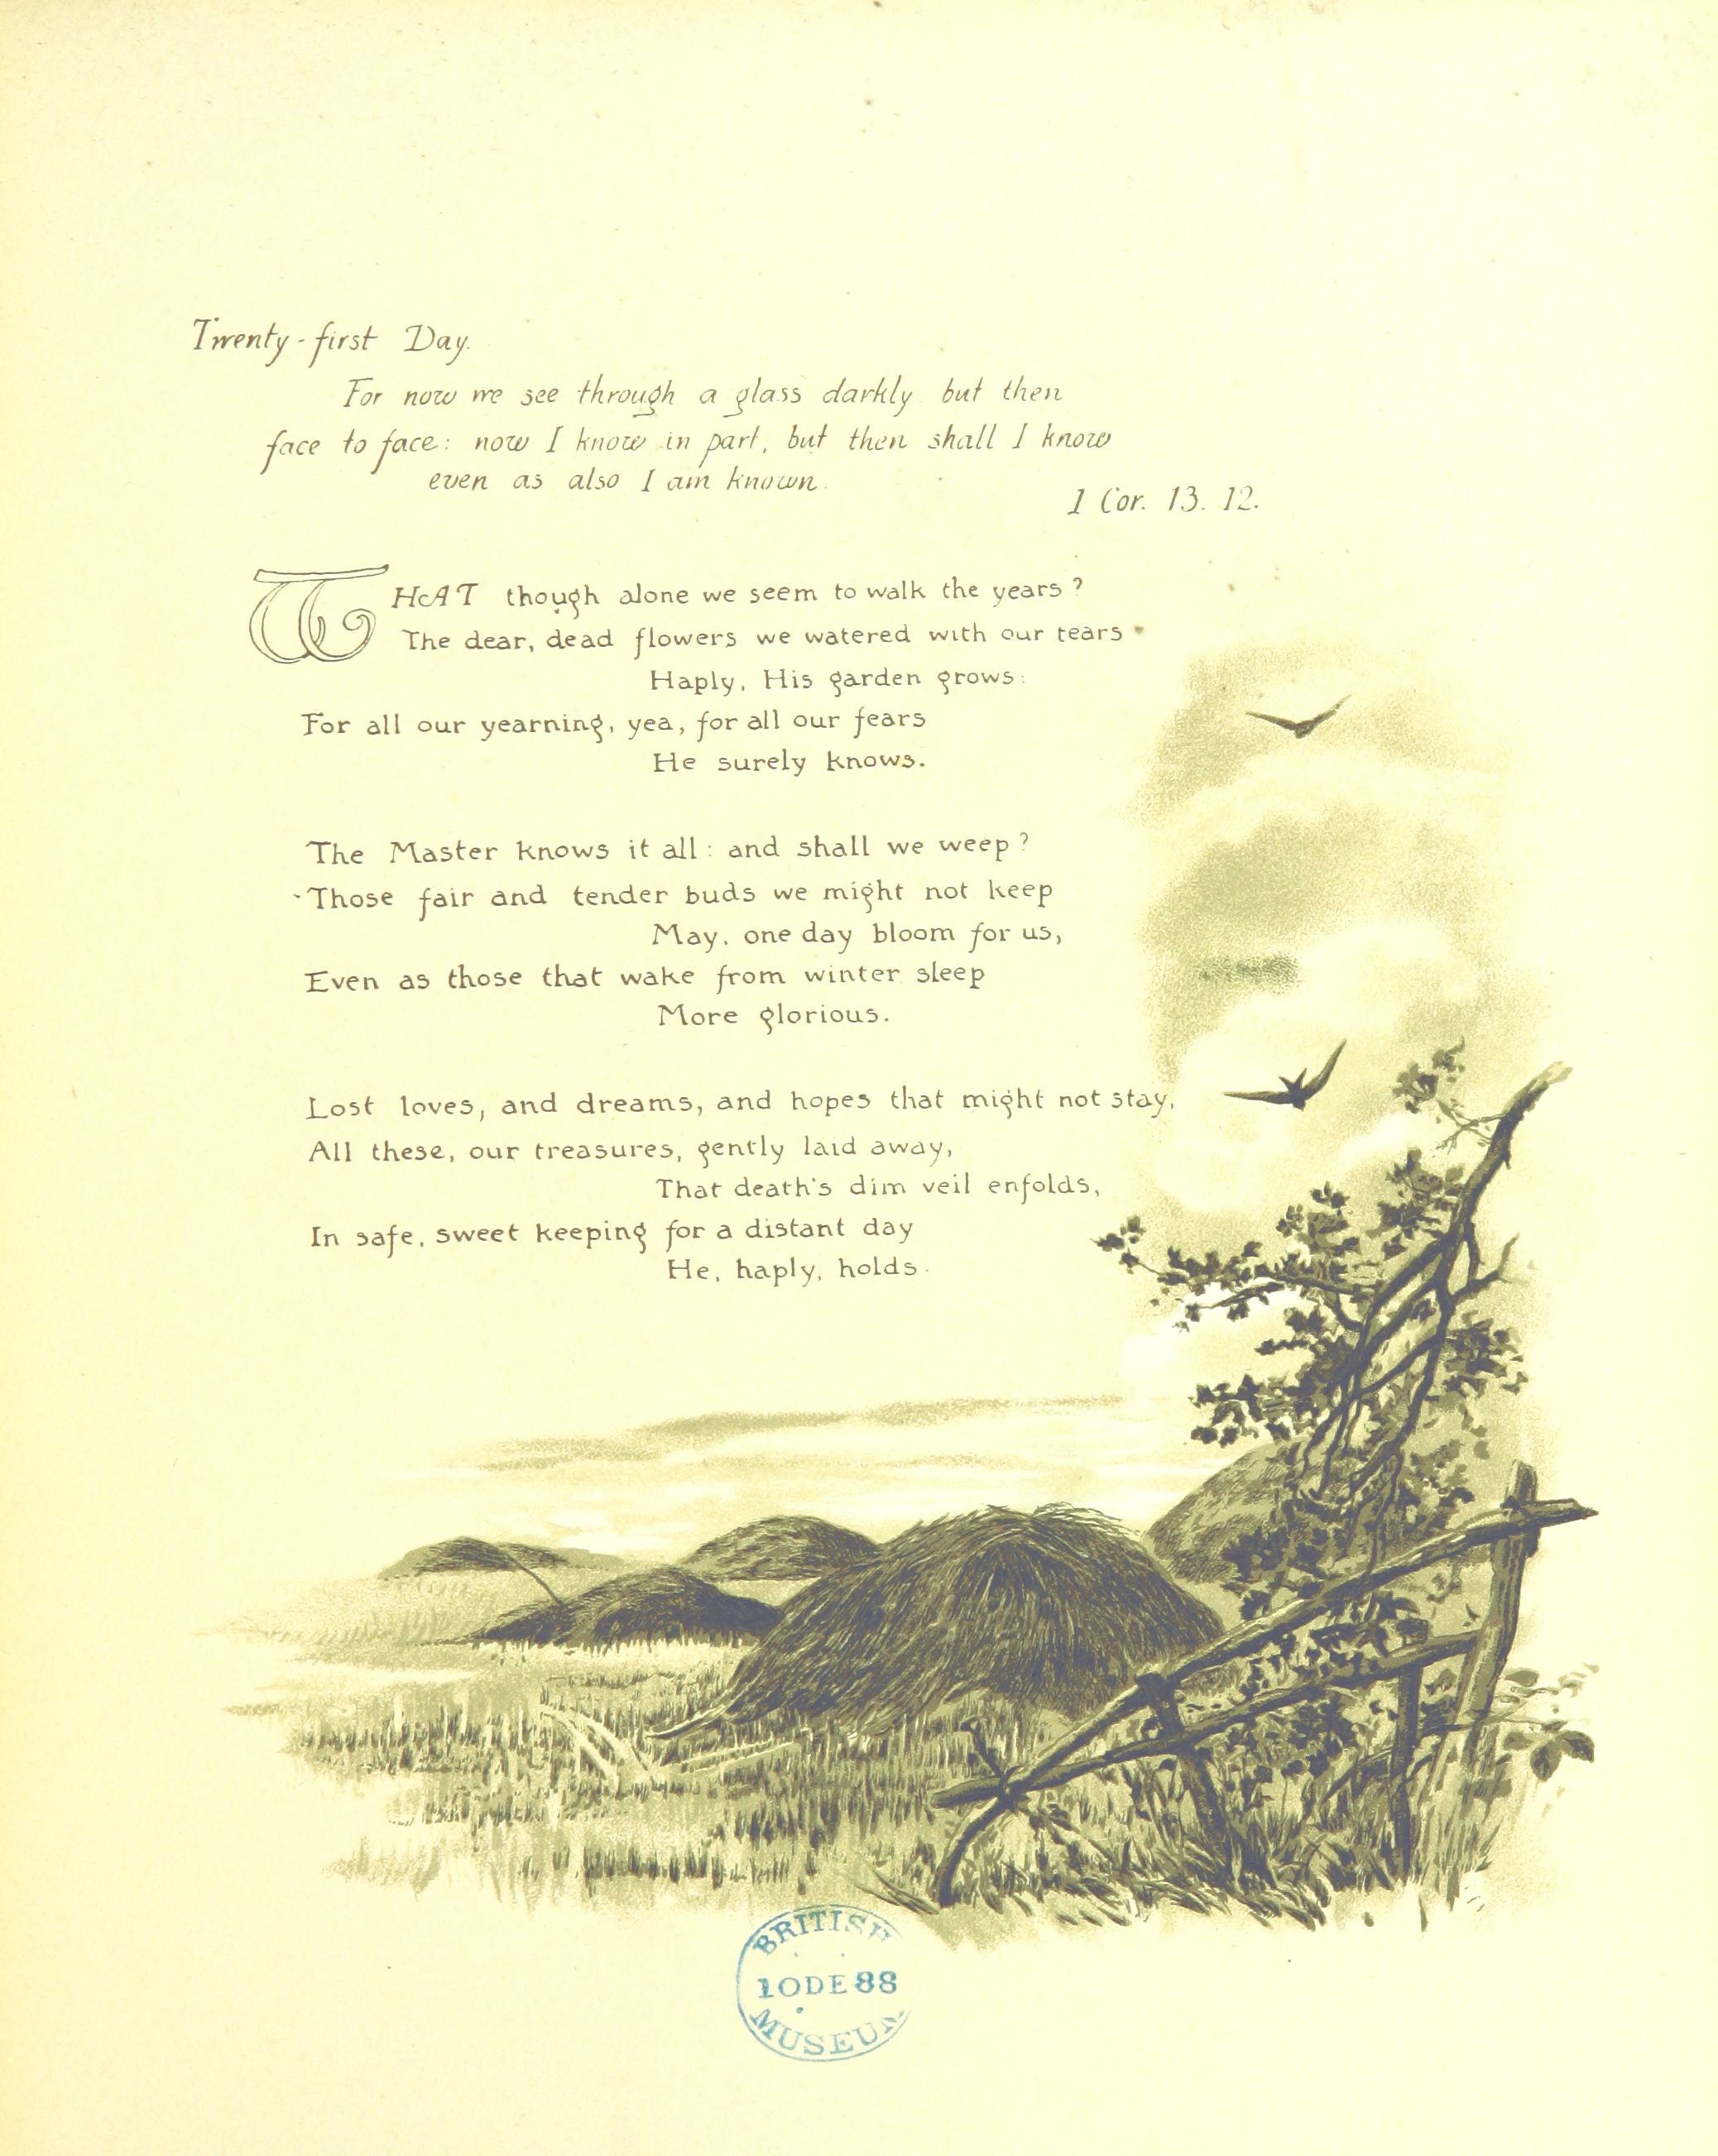 Twenty-first Day.
For now we see through a glass darkly but then
face to face: now I know in part, but then shall I know
even as also I am known.
1 Cor. 13. 12.
WHAT though alone we seem to walk the years?
The dear, dead flowers we watered with our tears
Haply, His garden grows:
For all our yearning, yea, for all our fears
He surely knows.
The Master knows it all: and shall we weep?
Those fair and tender buds we might not keep
May, one day bloom for us,
Even as those that wake from winter sleep
More glorious.
Lost loves, and dreams, and hopes that might not stay,
All these, our treasures, gently laid away,
That death's dim veil enfolds,
In safe, sweet keeping for a distant day
He, haply, holds.
BRITISH
10DE88
MUSEUM